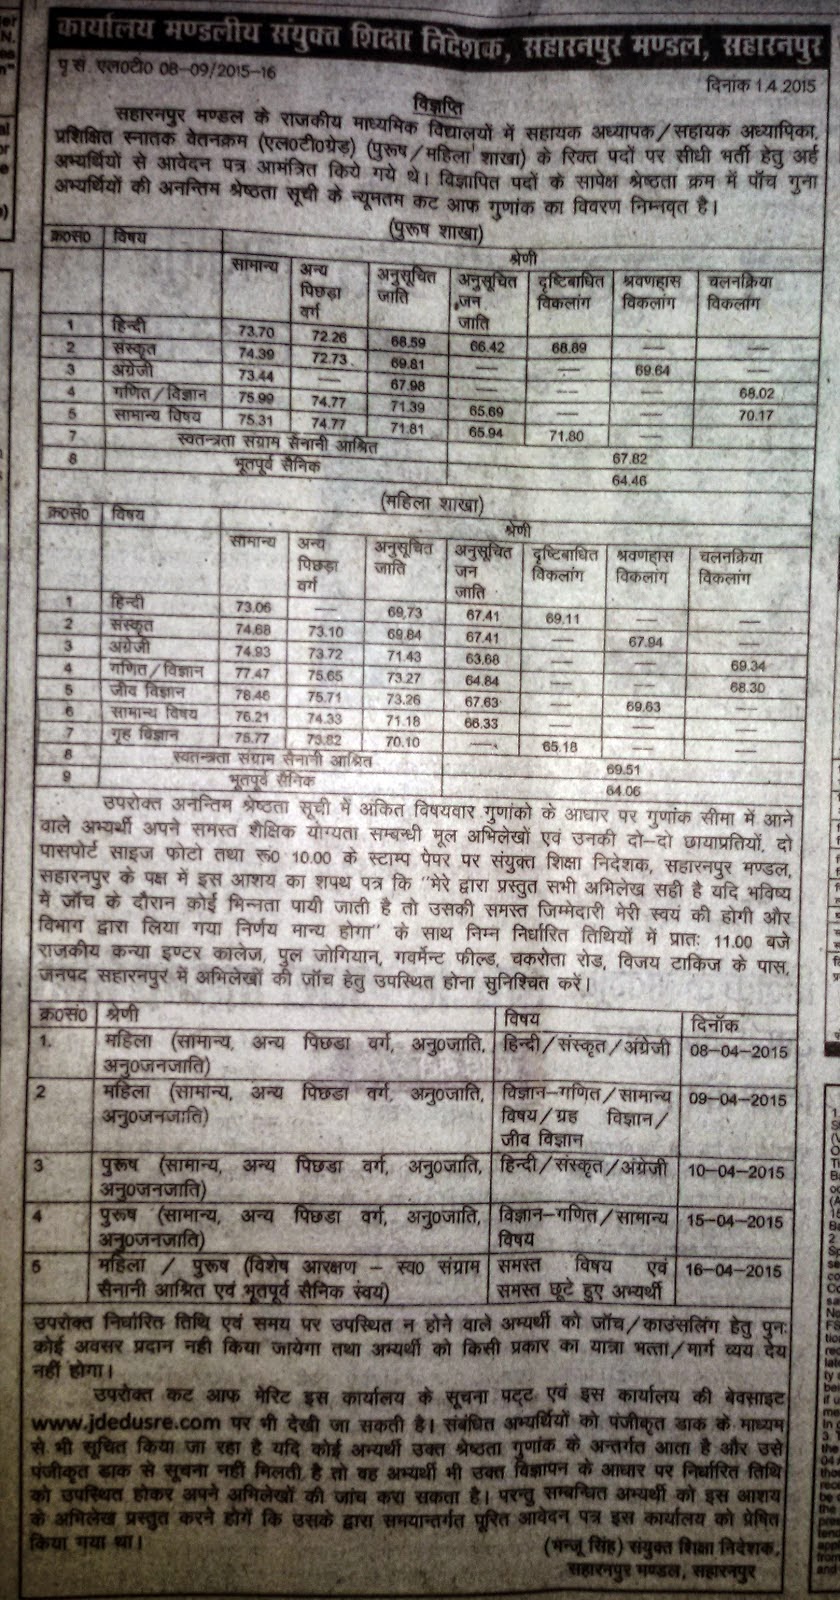 कार्यालय मण्डलीय संयुक्त शिक्षा निदेशक, सहारनपुर मण्डल, सहारनपुर
पृ.सं. एल०टी० 08-09/2015-16 दिनांक 1.4.2015
विज्ञप्ति
सहारनपुर मण्डल के राजकीय माध्यमिक विद्यालयों में सहायक अध्यापक/सहायक अध्यापिका,
प्रशिक्षित स्नातक वेतनक्रम (एल०टी०ग्रेड) (पुरूष/महिला शाखा) के रिक्त पदों पर सीधी भर्ती हेतु अर्ह
अभ्यर्थियों से आवेदन पत्र आमंत्रित किये गये थे। विज्ञापित पदों के सापेक्ष श्रेष्ठता क्रम में पॉच गुना
अभ्यर्थियों की अनन्तिम श्रेष्ठता सूची के न्यूमतम कट आफ गुणांक का विवरण निम्नवृत है।
(पुरूष शाखा)
क्र०सं० विषय श्रेणी
सामान्य अन्य पिछड़ा वर्ग अनुसूचित जाति अनुसूचित जन जाति दृष्टिबाधित विकलांग श्रवणहास विकलांग चलनक्रिया विकलांग
1 हिन्दी 73.70 72.26 68.59 66.42 68.89 — —
2 संस्कृत 74.39 72.73 69.81 — — 69.64 —
3 अंग्रेजी 73.44 — 67.98 — — — 68.02
4 गणित/विज्ञान 75.99 74.77 71.39 65.69 — — 70.17
5 सामान्य विषय 75.31 74.77 71.81 65.94 71.80 — —
7 स्वतन्त्रता संग्राम सैनानी आश्रित 67.82
8 भूतपूर्व सैनिक 64.46
(महिला शाखा)
क्र०सं० विषय श्रेणी
सामान्य अन्य पिछड़ा वर्ग अनुसूचित जाति अनुसूचित जन जाति दृष्टिबाधित विकलांग श्रवणहास विकलांग चलनक्रिया विकलांग
1 हिन्दी 73.06 — 69.73 67.41 69.11 — —
2 संस्कृत 74.68 73.10 69.84 67.41 — 67.94 —
3 अंग्रेजी 74.93 73.72 71.43 63.68 — — 69.34
4 गणित/विज्ञान 77.47 75.65 73.27 64.84 — — 68.30
5 जीव विज्ञान 78.46 75.71 73.26 67.63 — 69.63 —
6 सामान्य विषय 76.21 74.33 71.18 66.33 — — —
7 गृह विज्ञान 75.77 73.82 70.10 — 65.18 — —
8 स्वतन्त्रता संग्राम सैनानी आश्रित 69.51
9 भूतपूर्व सैनिक 64.06
उपरोक्त अनन्तिम श्रेष्ठता सूची में अंकित विषयवार गुणांको के आधार पर गुणांक सीमा में आने
वाले अभ्यर्थी अपने समस्त शैक्षिक योग्यता सम्बन्धी मूल अभिलेखों एवं उनकी दो-दो छायाप्रतियों, दो
पासपोर्ट साइज फोटो तथा रू० 10.00 के स्टाम्प पेपर पर संयुक्त शिक्षा निदेशक, सहारनपुर मण्डल,
सहारनपुर के पक्ष में इस आशय का शपथ पत्र कि "मेरे द्वारा प्रस्तुत सभी अभिलेख सही है यदि भविष्य
में जॉच के दौरान कोई भिन्नता पायी जाती है तो उसकी समस्त जिम्मेदारी मेरी स्वयं की होगी और
विभाग द्वारा लिया गया निर्णय मान्य होगा" के साथ निम्न निर्धारित तिथियों में प्रातः 11.00 बजे
राजकीय कन्या इण्टर कालेज, पुल जोगियान, गवर्मेन्ट फील्ड, चकरोता रोड, विजय टाकिज के पास,
जनपद सहारनपुर में अभिलेखों की जॉच हेतु उपस्थित होना सुनिश्चित करें।
क्र०सं० श्रेणी विषय दिनॉक
1. महिला (सामान्य, अन्य पिछडा वर्ग, अनु०जाति, हिन्दी/संस्कृत/अंग्रेजी 08-04-2015
अनु०जनजाति)
2 महिला (सामान्य, अन्य पिछडा वर्ग, अनु०जाति, विज्ञान-गणित/सामान्य 09-04-2015
अनु०जनजाति) विषय/ग्रह विज्ञान/
जीव विज्ञान
3 पुरूष (सामान्य, अन्य पिछडा वर्ग, अनु०जाति, हिन्दी/संस्कृत/अंग्रेजी 10-04-2015
अनु०जनजाति)
4 पुरूष (सामान्य, अन्य पिछडा वर्ग, अनु०जाति, विज्ञान-गणित/सामान्य 15-04-2015
अनु०जनजाति) विषय
5 महिला / पुरूष (विशेष आरक्षण - स्व० संग्राम समस्त विषय एवं 16-04-2015
सैनानी आश्रित एवं भूतपूर्व सैनिक स्वयं) समस्त छूटे हुए अभ्यर्थी
उपरोक्त निर्धारित तिथि एवं समय पर उपस्थित न होने वाले अभ्यर्थी को जॉच/काउंसलिंग हेतु पुनः
कोई अवसर प्रदान नही किया जायेगा तथा अभ्यर्थी को किसी प्रकार का यात्रा भत्ता/मार्ग व्यय देय
नहीं होगा।
उपरोक्त कट आफ मेरिट इस कार्यालय के सूचना पट्ट एवं इस कार्यालय की बेवसाइट
www.jdedusre.com पर भी देखी जा सकती है। संबंधित अभ्यर्थियों को पंजीकृत डाक के माध्यम
से भी सूचित किया जा रहा है यदि कोई अभ्यर्थी उक्त श्रेष्ठता गुणांक के अन्तर्गत आता है और उसे
पंजीकृत डाक से सूचना नहीं मिलती है तो वह अभ्यर्थी भी उक्त विज्ञापन के आधार पर निर्धारित तिथि
को उपस्थित होकर अपने अभिलेखों की जांच करा सकता है। परन्तु सम्बन्धित अभ्यर्थी को इस आशय
के अभिलेख प्रस्तुत करने होगें कि उसके द्वारा समयान्तर्गत पूरित आवेदन पत्र इस कार्यालय को प्रेषित
किया गया था।
(मन्जू सिंह) संयुक्त शिक्षा निदेशक,
सहारनपुर मण्डल, सहारनपुर